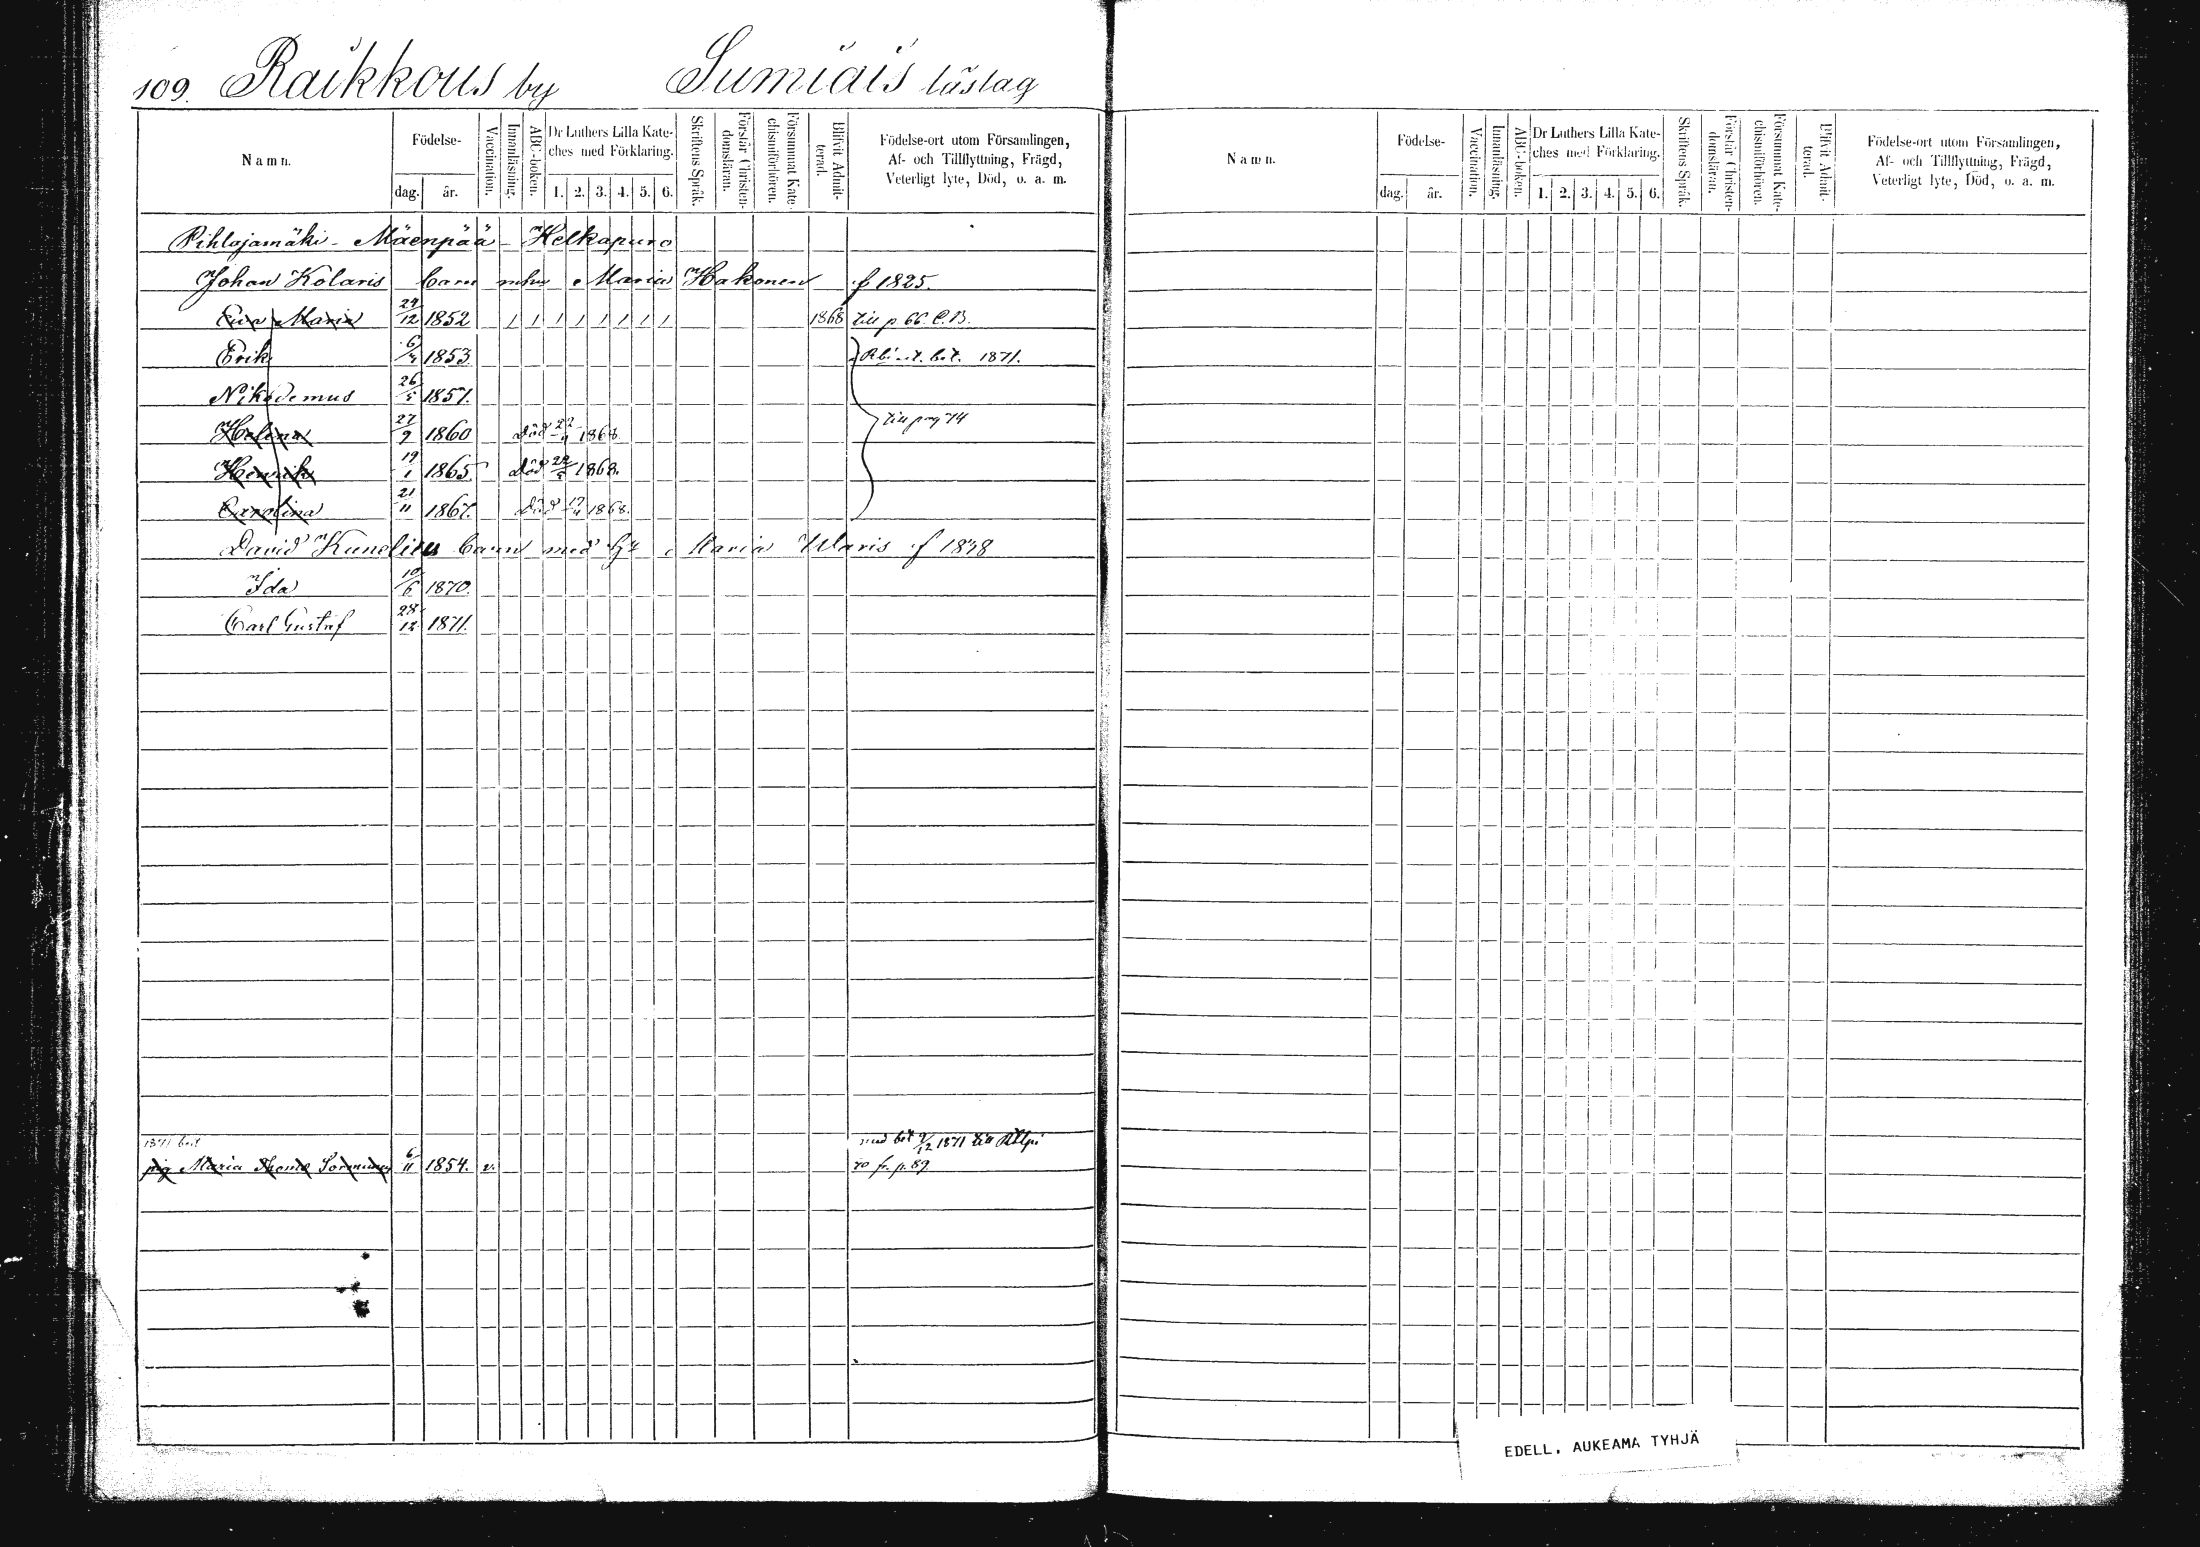 109. Raikkous by Sumiais läslag
Namn. Födelse- dag. år. Vaccination. Innanläsning. ABC-boken. Dr Luthers Lilla Kate-ches med Förklaring. 1. 2. 3. 4. 5. 6. Skriftens Språk. Förstår Christen-domsläran. Försummat Kate-chismiförhören. Blifvit Admit-terad. Födelse-ort utom Församlingen, Af- och Tillflyttning, Frägd, Veterligt lyte, Död, o. a. m.
Pihlajamäki - Mäenpää - Helkapuro
Johan Kolaris barn mhu Maria Hakonen f 1825.
Eva Maria 24/12 1852 / / / / / / / / 1868 till p 66. C.B.
Erik 6/ 1853. bet. 1871.
Nikodemus 26/5 1857.
Helena 27/9 1860 död 1868. till pag 74
Henrik 19/1 1865 Död 1868.
Carolina 21/11 1867. Död 1868.
David Kunelius barn med Maria Ularis f 1848
Ida 10/6 1870.
Carl Gustaf 28/12 1871.
1871 bet med bet 1871 till
pig Maria Sorminen 6/11 1854. v. fr. p. 89.
Namn. Födelse- dag. år. Vaccination. Innanläsning. ABC-boken. Dr Luthers Lilla Kate-ches med Förklaring. 1. 2. 3. 4. 5. 6. Skriftens Språk. Förstår Christen-domsläran. Försummat Kate-chismiförhören. Blifvit Admit-terad. Födelse-ort utom Församlingen, Af- och Tillflyttning, Frägd, Veterligt lyte, Död, o. a. m.
EDELL. AUKEAMA TYHJÄ